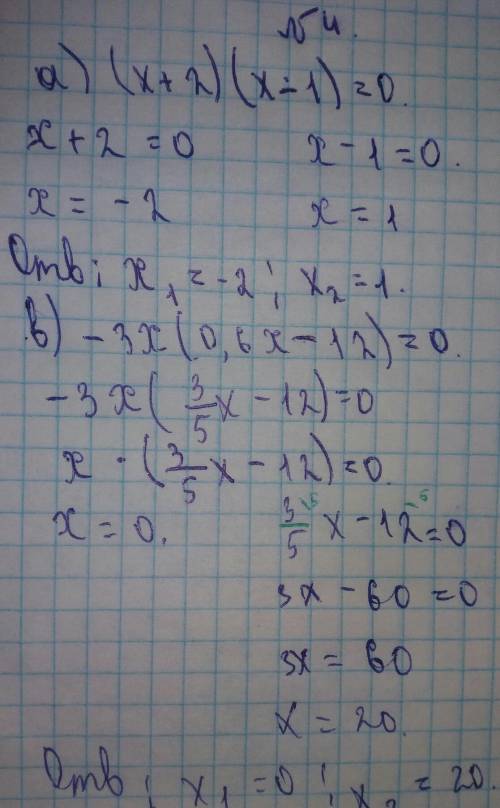 №4.
а) (x+2)(x-1)=0.
x+2=0 x-1=0.
x=-2 x=1
Отв: x₁=-2; x₂=1.
в) -3x(0,6x-12)=0.
-3x(3/5x-12)=0
x·(3/5x-12)=0.
x=0. 3/5\5 x-12\5=0
3x-60=0
3x=60
x=20.
Отв: x₁=0; x₂=20.